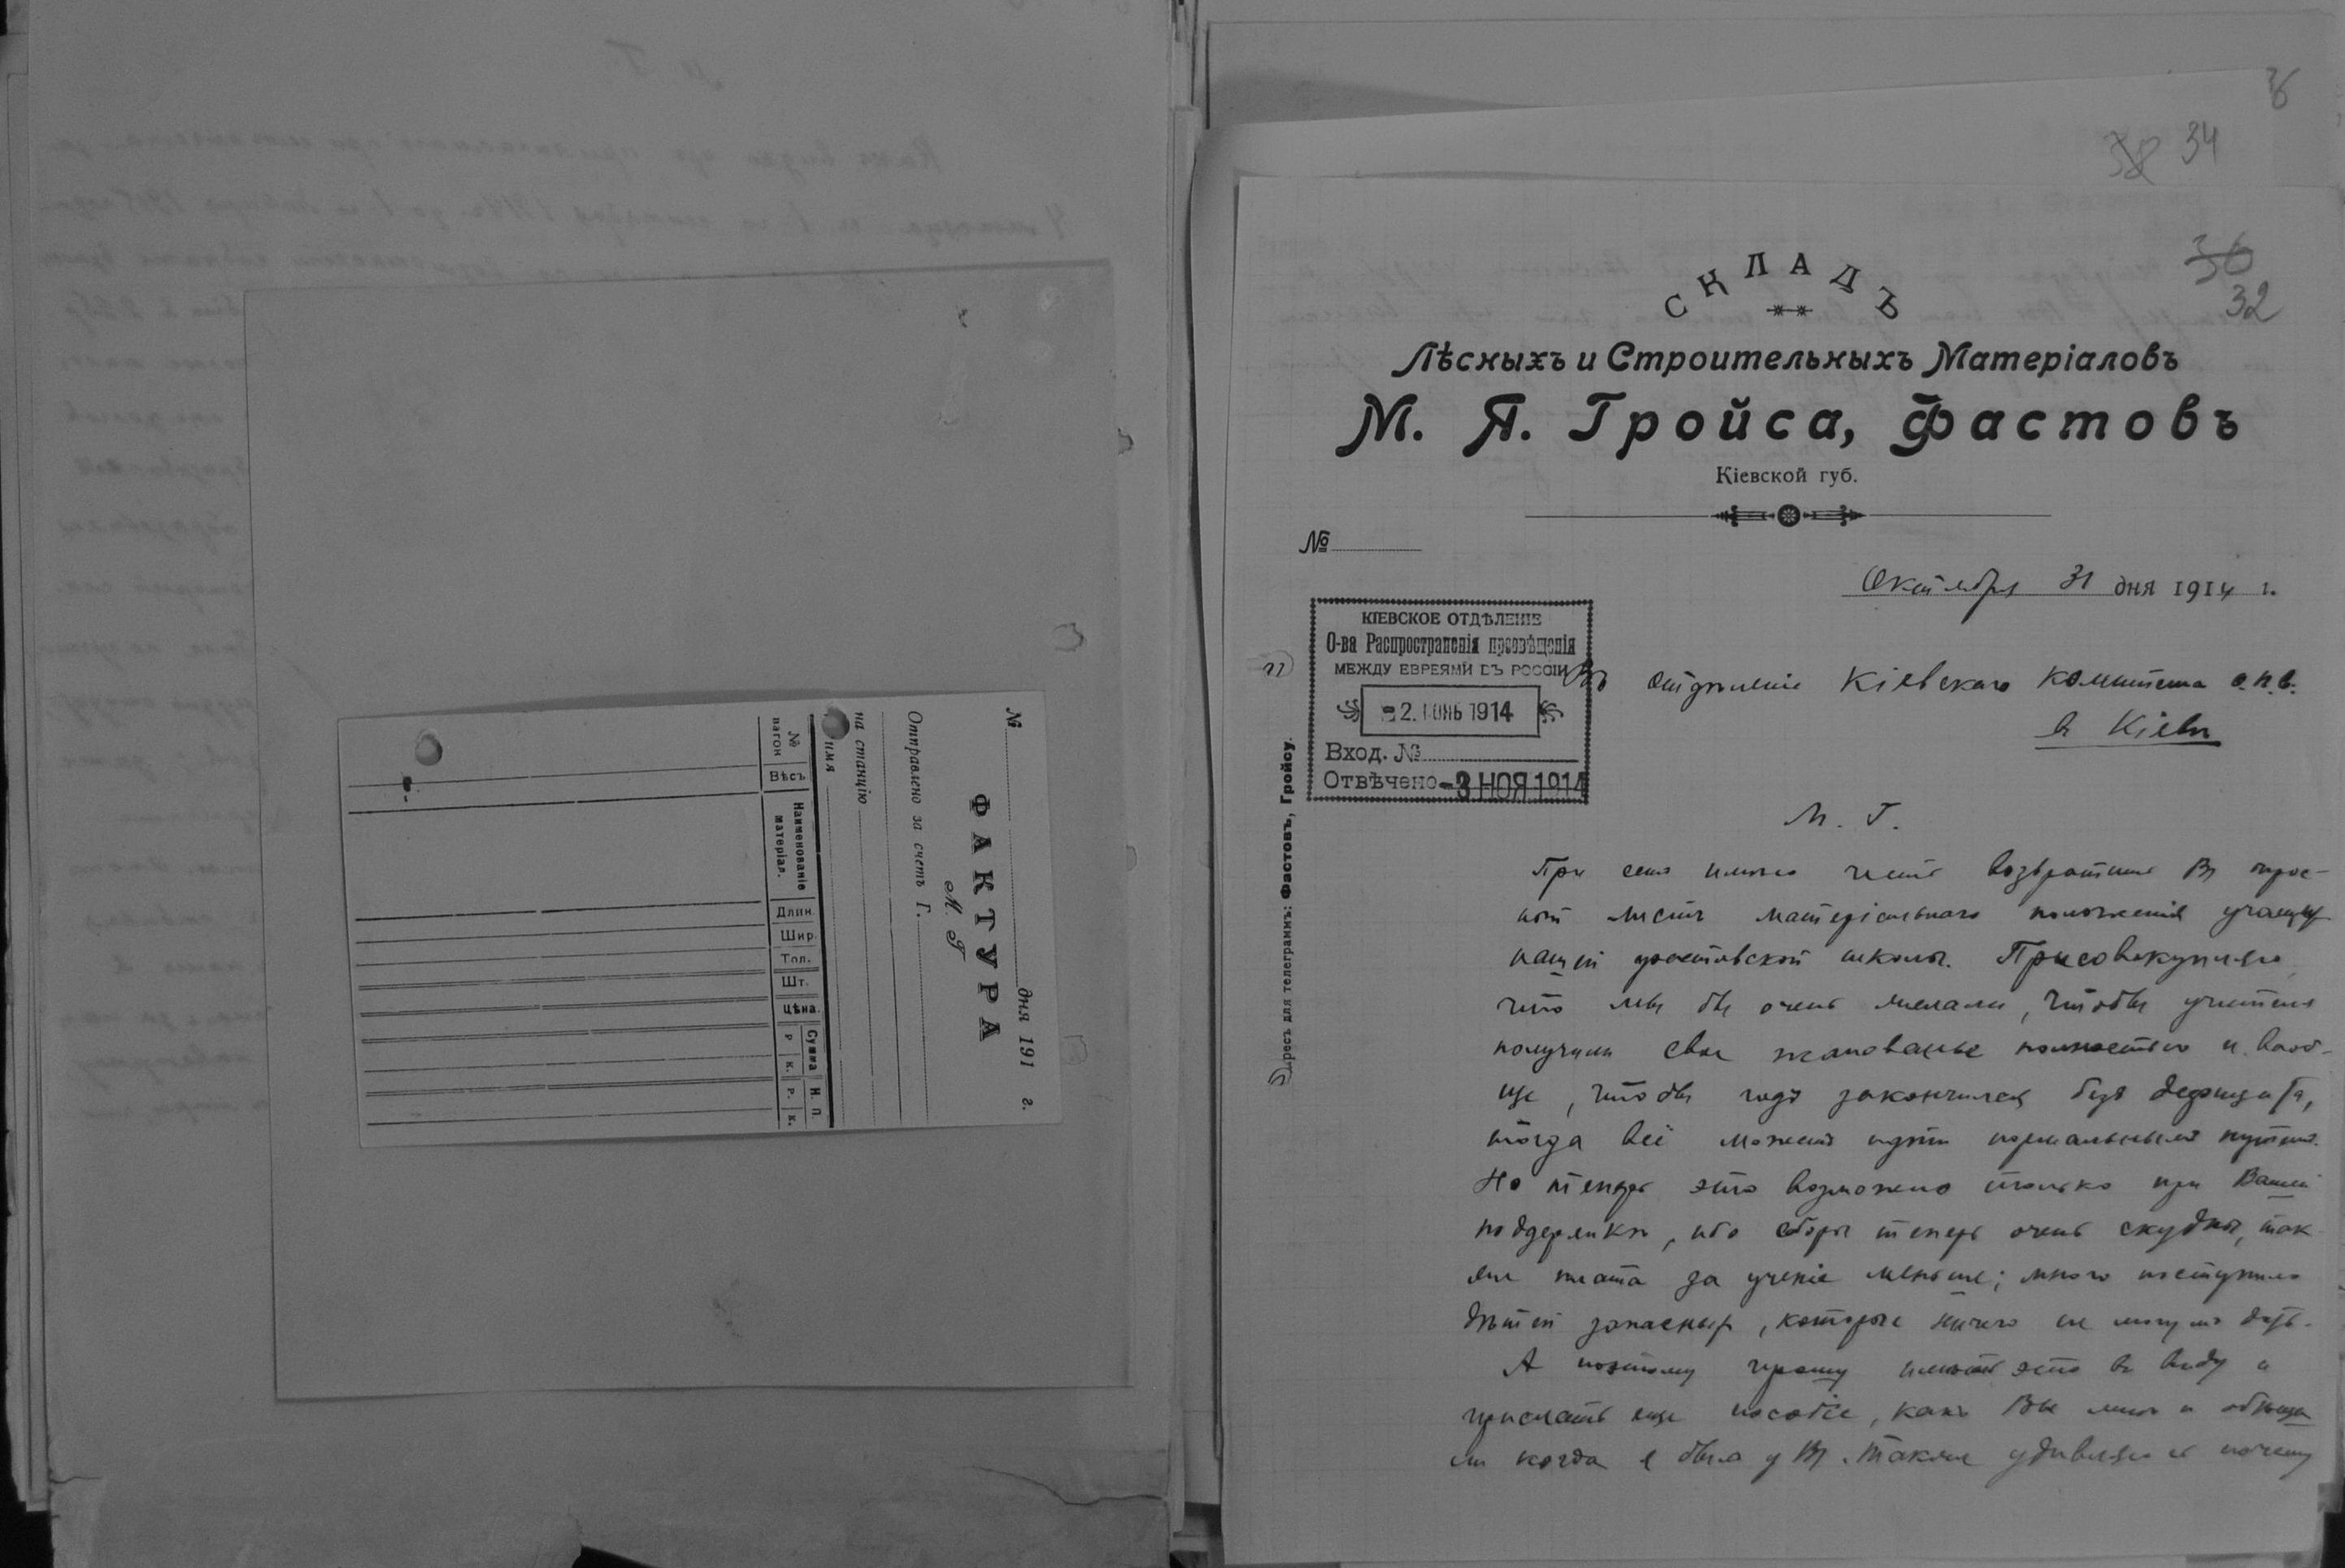 № дня 191 г.
ФАКТУРА
М. Г.
Отправлено за счетъ Г.
на станцію
имя
№ вагон
Вѣсъ
Наименованіе матеріал.
Длин.
Шир.
Тол.
Шт.
Цѣна.
Сумма
Р. К.
Н. П.
Р. К.
36
38 34
36
32
СКЛАДЪ
Лѣсныхъ и Строительныхъ Матеріаловъ
М. Я. Гройса, Фастовъ
Кіевской губ.
№
Октября 31 дня 1914 г.
КІЕВСКОЕ ОТДѢЛЕНІЕ
О-ва Распространенія просвѣщенія
МЕЖДУ ЕВРЕЯМИ ВЪ РОССІИ
2. 1914
Вход. №
Отвѣчено -3 НОЯ 1914
Адресъ для телеграммъ: Фастовъ, Гройсу.
Въ отдѣленіе Кіевскаго комитета о.п.е.
в Кіевѣ
М. Г.
При семъ имѣю честь возвратить В. опрос-
ный листъ матеріальнаго положенія учащихъ
нашей фастовской школы. Присовокупляю
что мы бы очень желали, чтобы учителя
получили свое жалованье полностью и вооб-
ще, чтобы годъ закончился безъ дефицита,
тогда всё можетъ идти нормальнымъ путемъ.
Но теперь это возможно только при Вашей
поддержкѣ, ибо сборы теперь очень скудны, так
же плата за ученіе меньше; много поступило
дѣтей запасныхъ, которые ничего не могутъ дать.
А поэтому прошу имѣть это въ виду и
прислать еще пособіе, какъ Вы мнѣ и обѣща
ли когда я былъ у В. Также удивляюсь почему